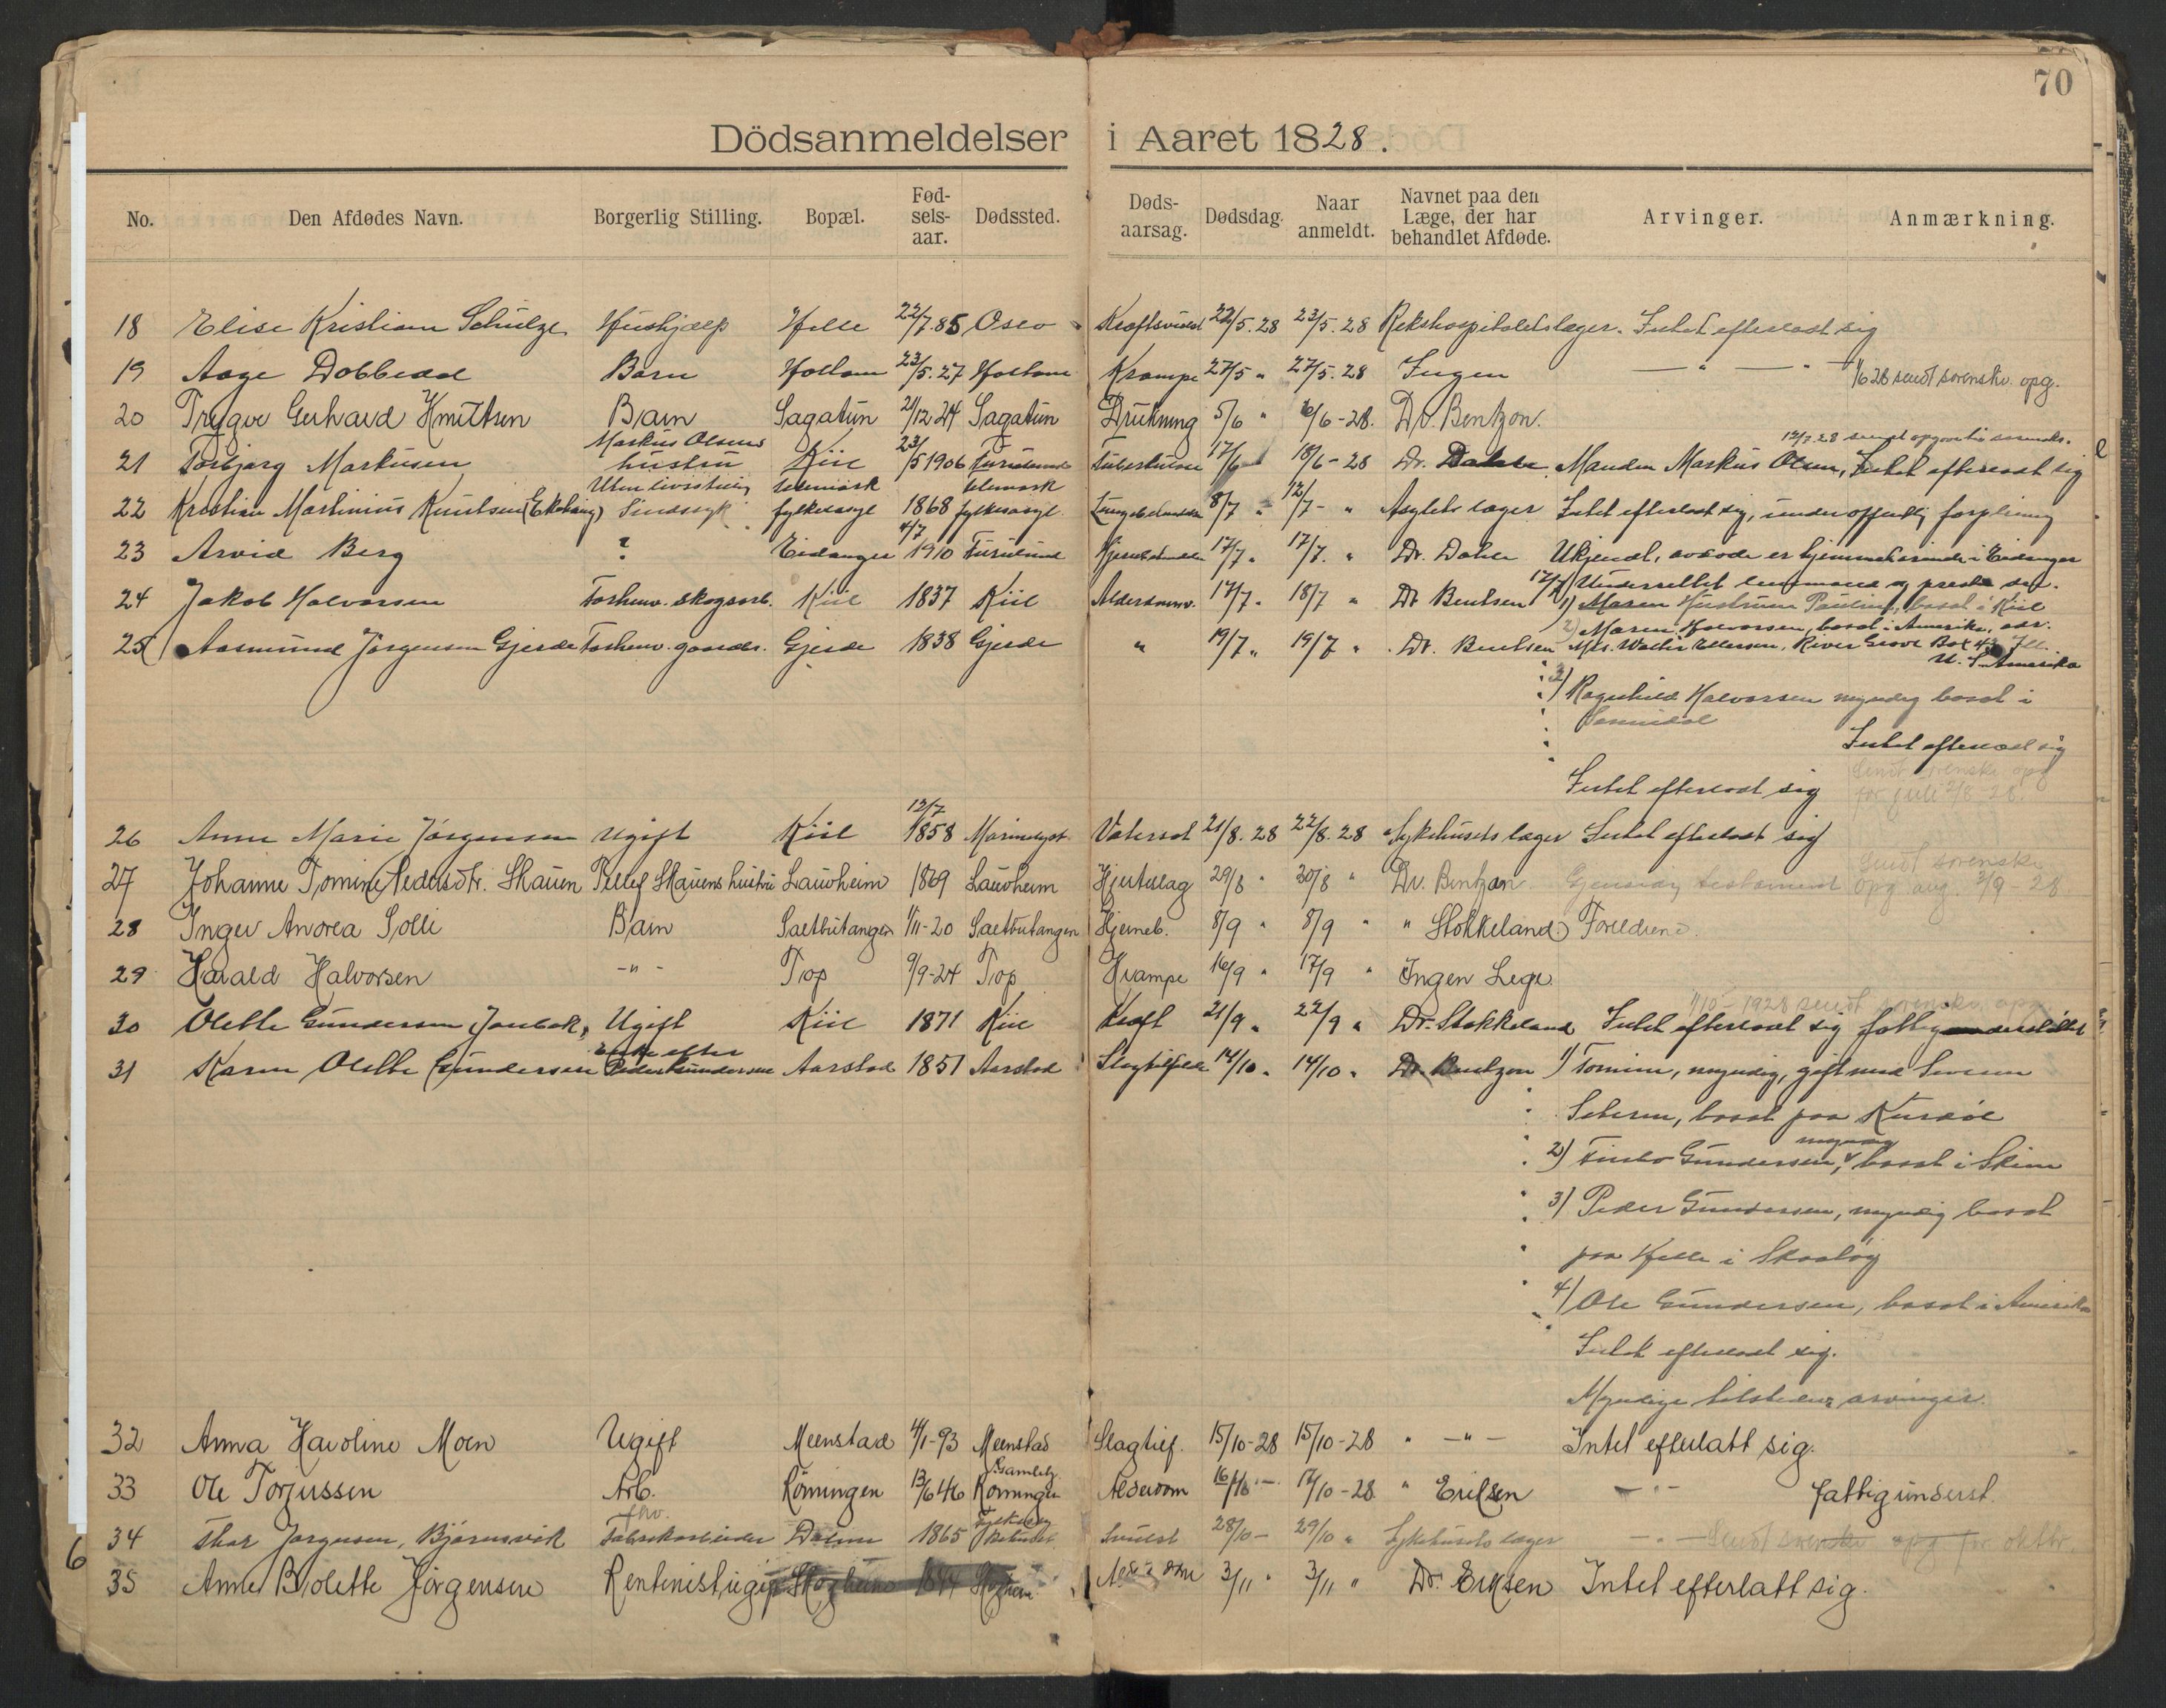 70
Dödsanmeldelser i Aaret 1828.
No. Den Afdødes Navn. Borgerlig Stilling. Bopæl. Fød-sels-aar. Dødssted. Døds-aarsag. Dødsdag. Naar anmeldt. Navnet paa den Læge, der har behandlet Afdøde. Arvinger. Anmærkning.
18 Elise Kristiane Schulze Hushjælp Helle 22/7.85 Oslo Kræftsvulst 22/5.28 23/5.28 Rikshospitalets læger. Intet efterladt sig
19 Aage Dobbedal Barn Holtane 23/5.27 Holtane Krampe 27/5 " 27/5.28 Ingen — " — " 1/6 28 sendt sorenskr. opg.
20 Trygve Gerhard Knutsen Barn Sagatun 21/12.24 Sagatun Drukning 5/6 " 6/6-28. Dr. Bentzon.
12/7.28 sendt opgave til sorenskr.
21 Torbjørg Markusen Markus Olsens hustru Kiil 23/5 1906 Furulund Tuberkulose 17/6 18/6-28 Dr. Dahle Manden Markus Olsen, Intet efterladt sig
22 Kristian Martinius Knutsen (Ekehaug) Uten livsstilling Sindssyk Telemark fylkesasyl 1868 Telemark fylkesasyl Lungebetændelse 8/7 " 12/7 - " Asylets læger Intet efterladt sig, under offentlig forpleining
23 Arvid Berg ? Eidanger 4/7 1910 Furulund Hjernebetændelse 17/7 " 17/7. " Dr. Dahle Ukjendt, avdøde er hjemmehørende i Eidanger
17/7 Underrettet lensmand og prest der.
24 Jakob Halvorsen Forhenv. skogsarb. Kiil 1837 Kiil Alderdomsv. 17/7 " 18/7 " Dr Bentsen 1) Maren Hustruen Pauline, bosat i Kiil
2) Maren Halvorsen, bosat i Amerika, adr.
25 Aasmund Jörgensen Gjerde Forhenv. gaardbr. Gjerde 1838 Gjerde " 19/7 " 19/7 " Dr. Bentsen Mrs. Walter Ellersen, River Grove Box 43 Ill.
U. S. Amerika
3) Ragnhild Halvorsen myndig bosat i
Sannidal
Intet efterladt sig
Intet efterladt sig Sendt sorenskr. opg for juli 2/8-28.
26 Anne Marie Jörgensen Ugift Kiil 12/7 1858 Marienlyst Vatersot 21/8.28 22/8.28 Sykehusets læger Intet efterladt sig
27 Johanne Tomine Pedersdtr. Skauen Tellef Skauens hustru Lauvheim 1869 Lauvheim Hjerteslag 29/8 " 30/8 " Dr. Bentzon. Gjensidig testament Sendt sorenskr. opg aug. 3/9-28.
28 Inger Andrea Solli Barn Saltbutangen 1/11-20 Saltbutangen Hjerneb. 8/9 " 8/9 " " Stokkeland Foreldrene.
29 Harald Halvorsen -"- Top 9/9-24 Top Krampe 16/9 " 17/9 " Ingen Lege
1/10-1928 sendt sorenskr. opg
30 Olette Gundersen Jonbak, Ugift Kiil 1871 Kiil Kræft 21/9 " 22/9 " Dr. Stokkeland Intet efterladt sig fattigunderstøttet
31 Karen Olette Gundersen Enke efter Peder Gundersen Aarstad 1851 Aarstad Slagtilfælde 14/10 " 14/10 " Dr. Bentzon 1) Tomine, myndig, gift med Severin
Seterm, bosat paa Kurdöl
2) Gundersen, myndig bosat i Skien
3) Peder Gundersen, myndig bosat
paa Helle i Skaatøy
4) Ole Gundersen, bosat i Amerika
Intet efterladt sig.
Myndige tilstedev. arvinger.
32 Anna Karoline Moen Ugift Meenstad 4/1-93 Meenstad Slagtilf. 15/10-28 15/10-28 " -"- Intet efterlatt sig.
33 Ole Torjussen Arb. Rönningen 13/6 46 Gamleh. Rönningen Alderdom 16/10 " - 17/10-28 " Eriksen -"- fattigunderst.
34 Thor Jørgensen, Bjørnsvik fhv. Fabrikarbeider Dalene 1865 Sykehuset 28/10 - 29/10 " Sykehusets læger -"- Sendt sorenskr. opg for oktbr.
35 Anne Bolette Jörgensen Rentenist, ugift Skogheim 1844 Skogheim Alderdom 3/11 " 3/11 " Dr. Eriksen Intet efterlatt sig.
6